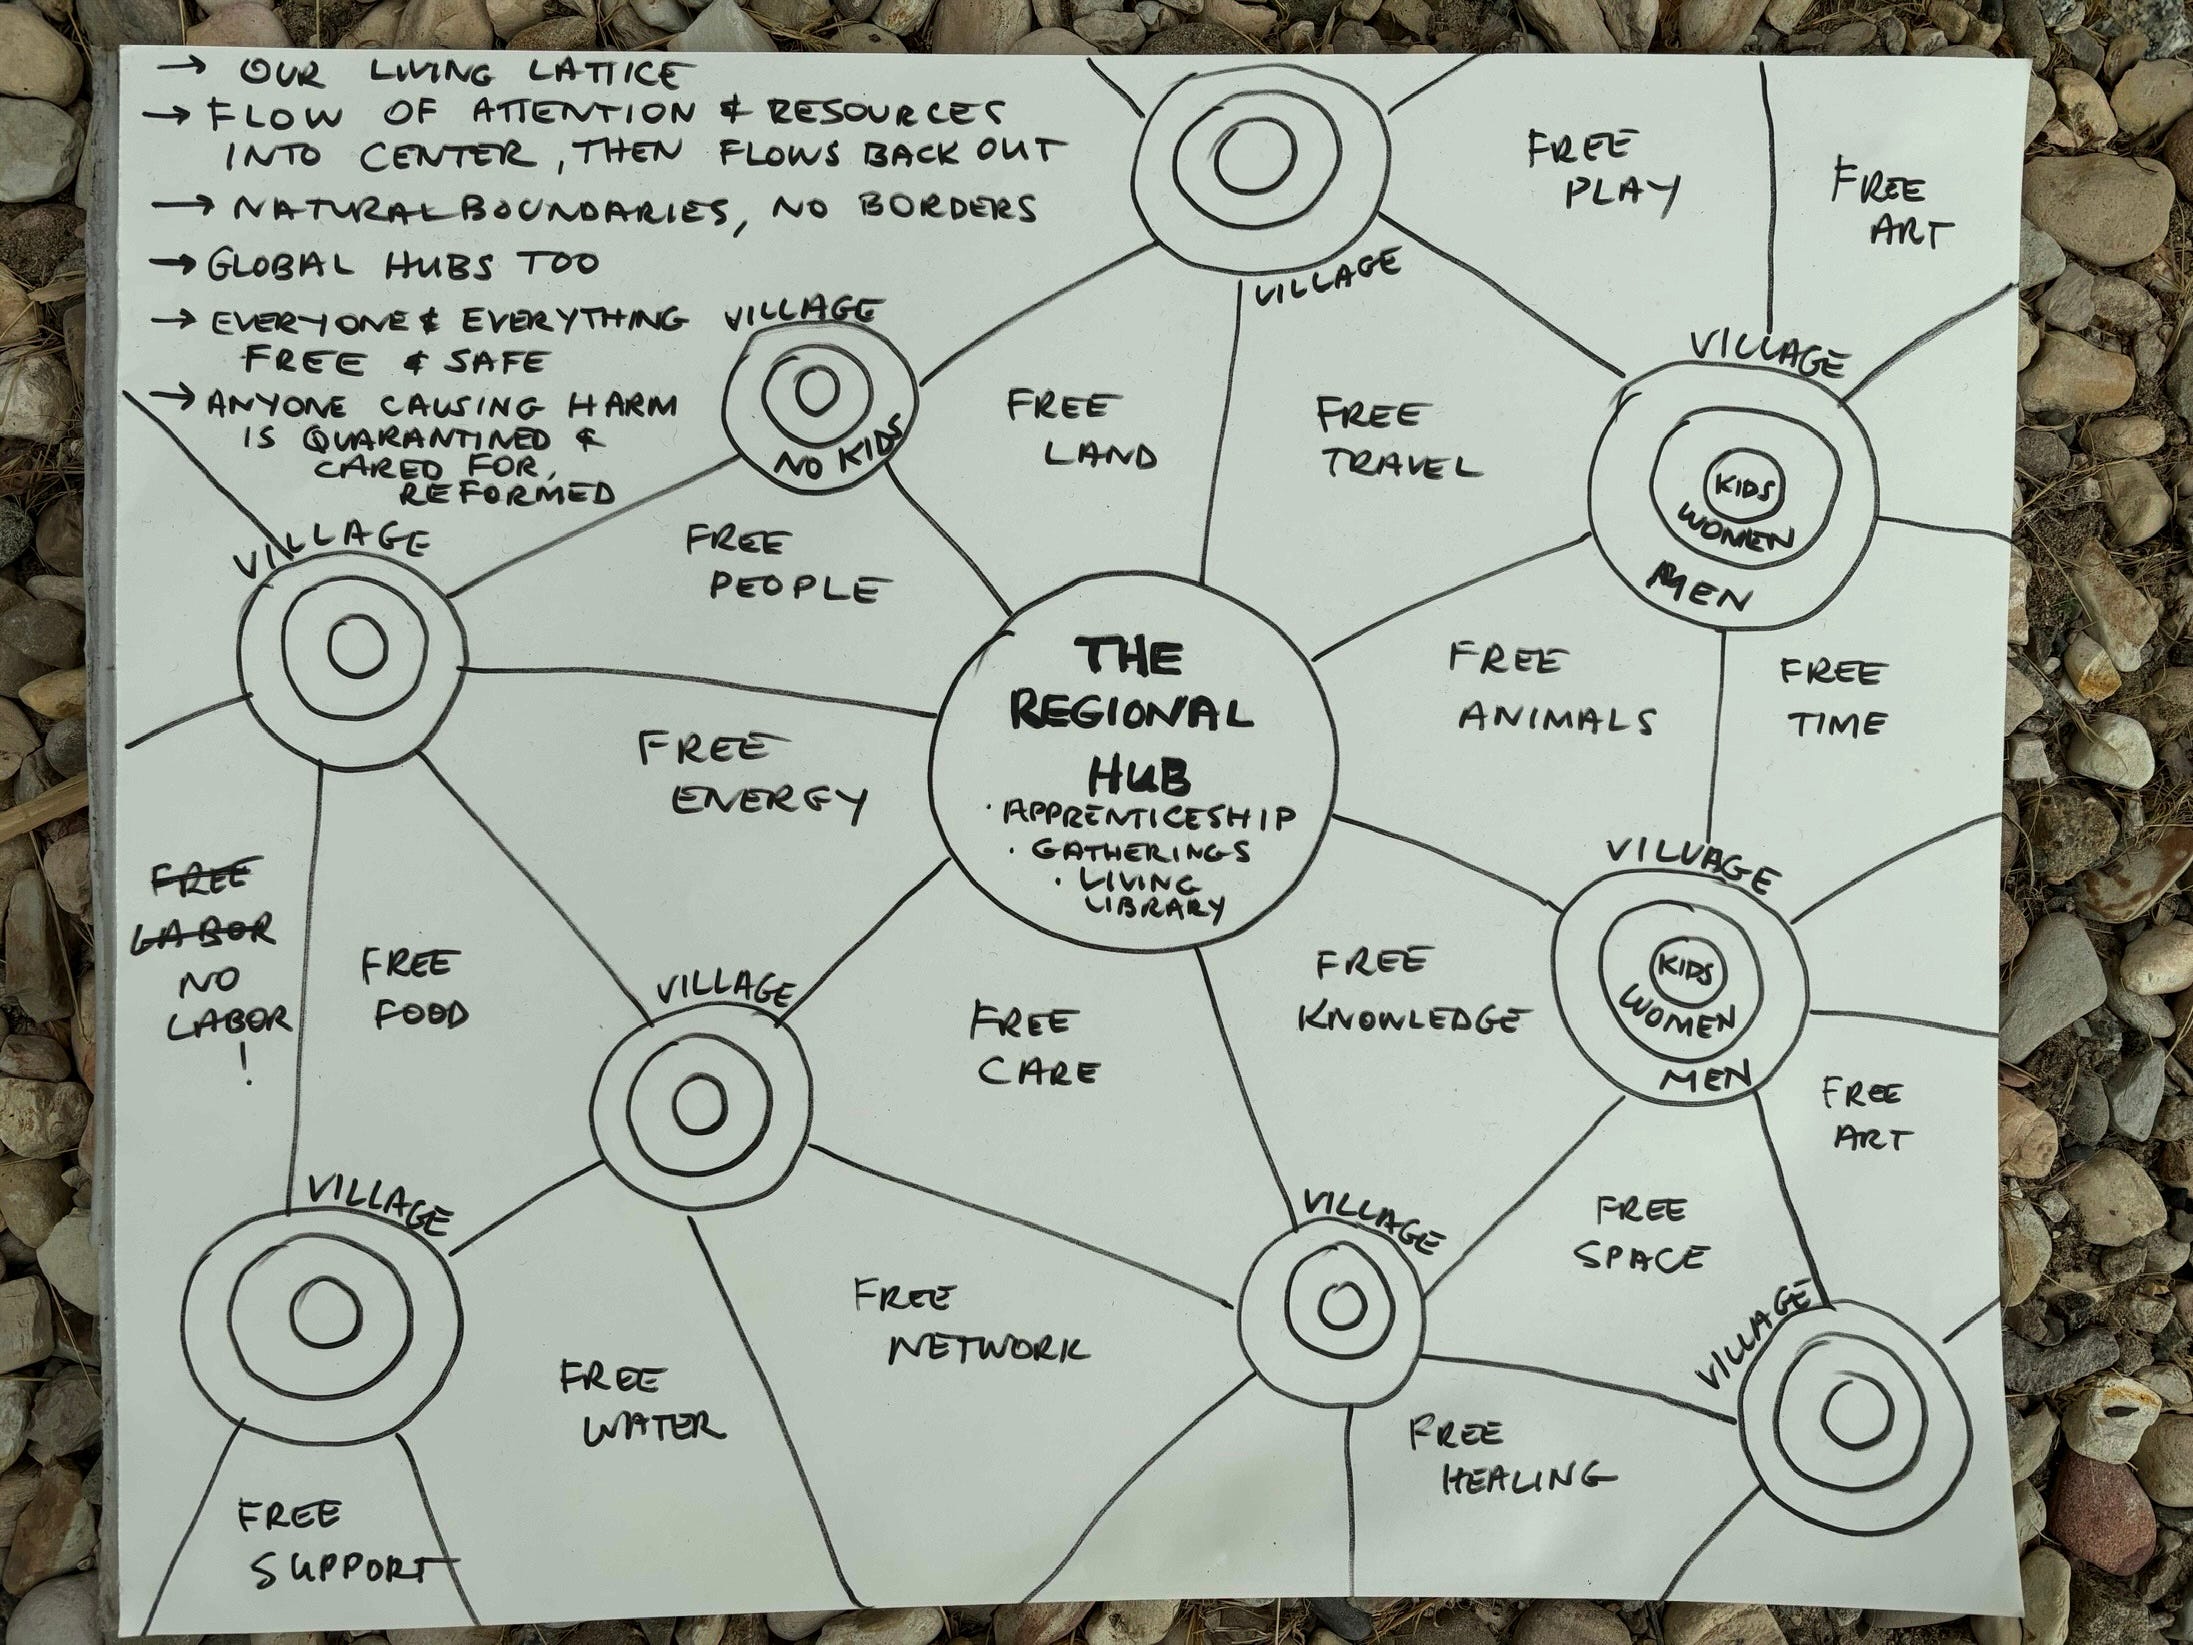 → OUR LIVING LATTICE
→ FLOW OF ATTENTION & RESOURCES
INTO CENTER, THEN FLOWS BACK OUT
→ NATURAL BOUNDARIES, NO BORDERS
→ GLOBAL HUBS TOO
→ EVERYONE & EVERYTHING
FREE & SAFE
→ ANYONE CAUSING HARM
IS QUARANTINED &
CARED FOR,
REFORMED
VILLAGE
FREE
PLAY
FREE
ART
VILLAGE
NO KIDS
FREE
LAND
FREE
TRAVEL
VILLAGE
KIDS
WOMEN
MEN
VILLAGE
FREE
PEOPLE
THE
REGIONAL
HUB
· APPRENTICESHIP
· GATHERINGS
· LIVING
LIBRARY
FREE
ANIMALS
FREE
TIME
FREE
ENERGY
FREE
LABOR
NO
LABOR
!
FREE
FOOD
VILLAGE
FREE
CARE
FREE
KNOWLEDGE
VILLAGE
KIDS
WOMEN
MEN
FREE
ART
VILLAGE
FREE
SUPPORT
FREE
WATER
FREE
NETWORK
VILLAGE
FREE
SPACE
VILLAGE
FREE
HEALING